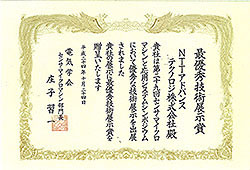 最優秀技術展示賞
NTTアドバンス
テクノロジ株式会社殿
貴社は第二十九回センサ・マイクロ
マシンと応用システムシンポジウム
において優秀な技術展示を出展
されました
貴社の展示に最優秀技術展示賞を
贈呈いたします
平成二十四年十月二十四日
電気学会
センサ・マイクロマシン部門長
庄子習一